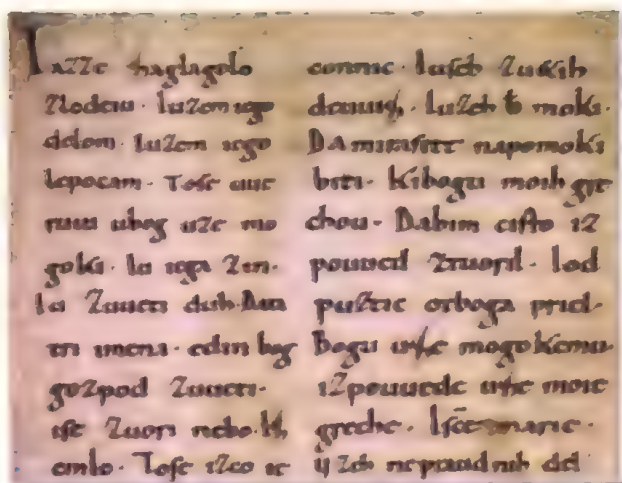 Iazze zaglagolo
Zlodeiu. Iuzem iego
delom. Iuzem iego
lepocam. Tose uue
ruiu ubog uze mo
goki. Iu iega Zin.
Iu Zuueti duh. Da ta
tri imena. edin bog
gozpod Zuueti.
ise Zuori nebo. Iz
emlo. Tose izco ie
Iuseh Zuetih
Iuzeh moki.
Da mirasite napomoki
biti. Kibogu moih gre
chou. Dabim cisto iz
pouued ztuoril. Iod
puztic otboga priel.
Bogu uze mogokemu
izpouuede uze moie
greche. Isce marie.
ii zeh nepraudnih del